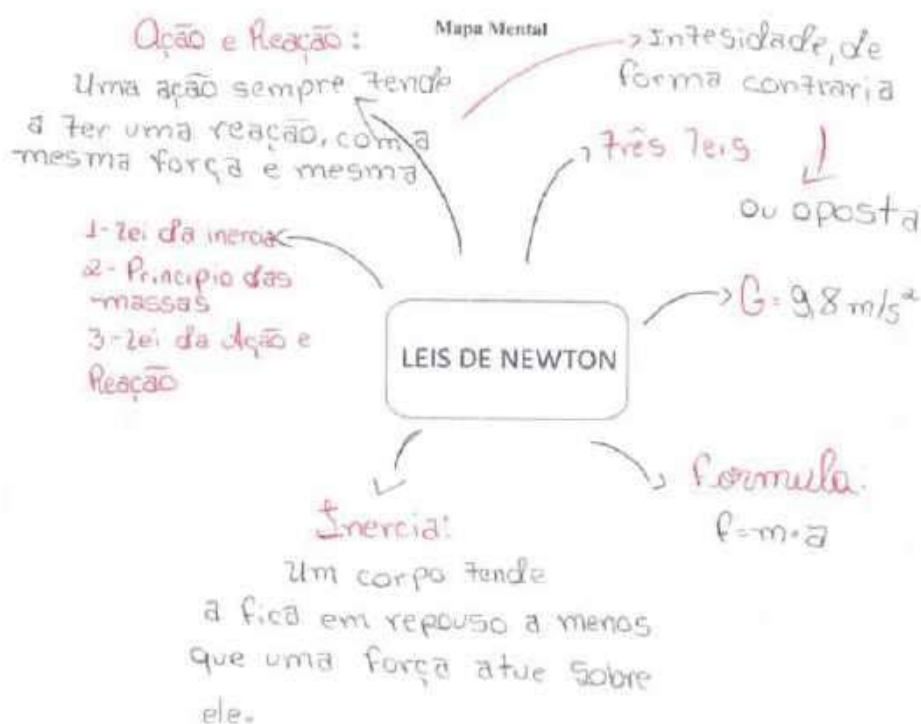 Mapa Mental
Ação e Reação:
Uma ação sempre tende
a ter uma reação, com a
mesma força e mesma
Intesidade, de
forma contraria
ou oposta
três leis
1-Lei da inercia
2- Principio das
massas
3-Lei da Ação e
Reação
G= 9,8 m/s²
LEIS DE NEWTON
Formula:
f=m.a
Inercia:
Um corpo tende
a fica em repouso a menos
que uma força atue sobre
ele.